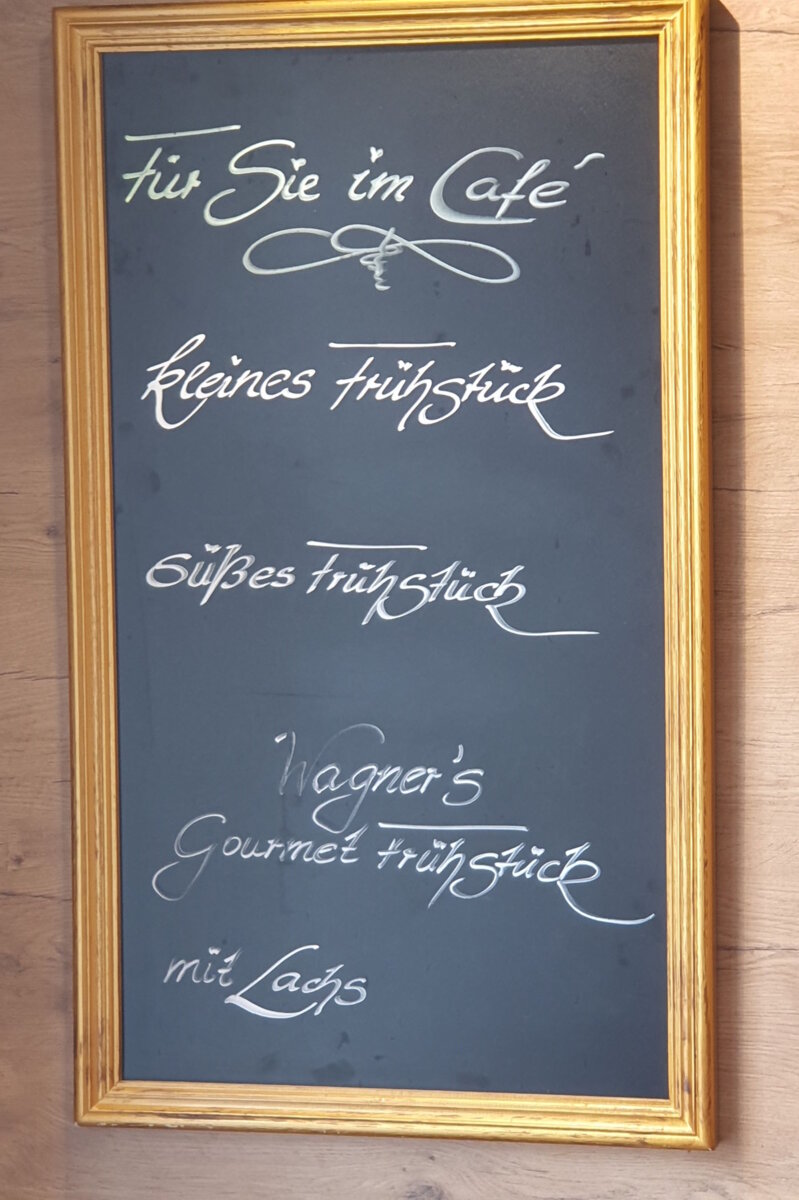 Für Sie im Café
kleines Frühstück
süßes Frühstück
Wagner's
Gourmet Frühstück
mit Lachs